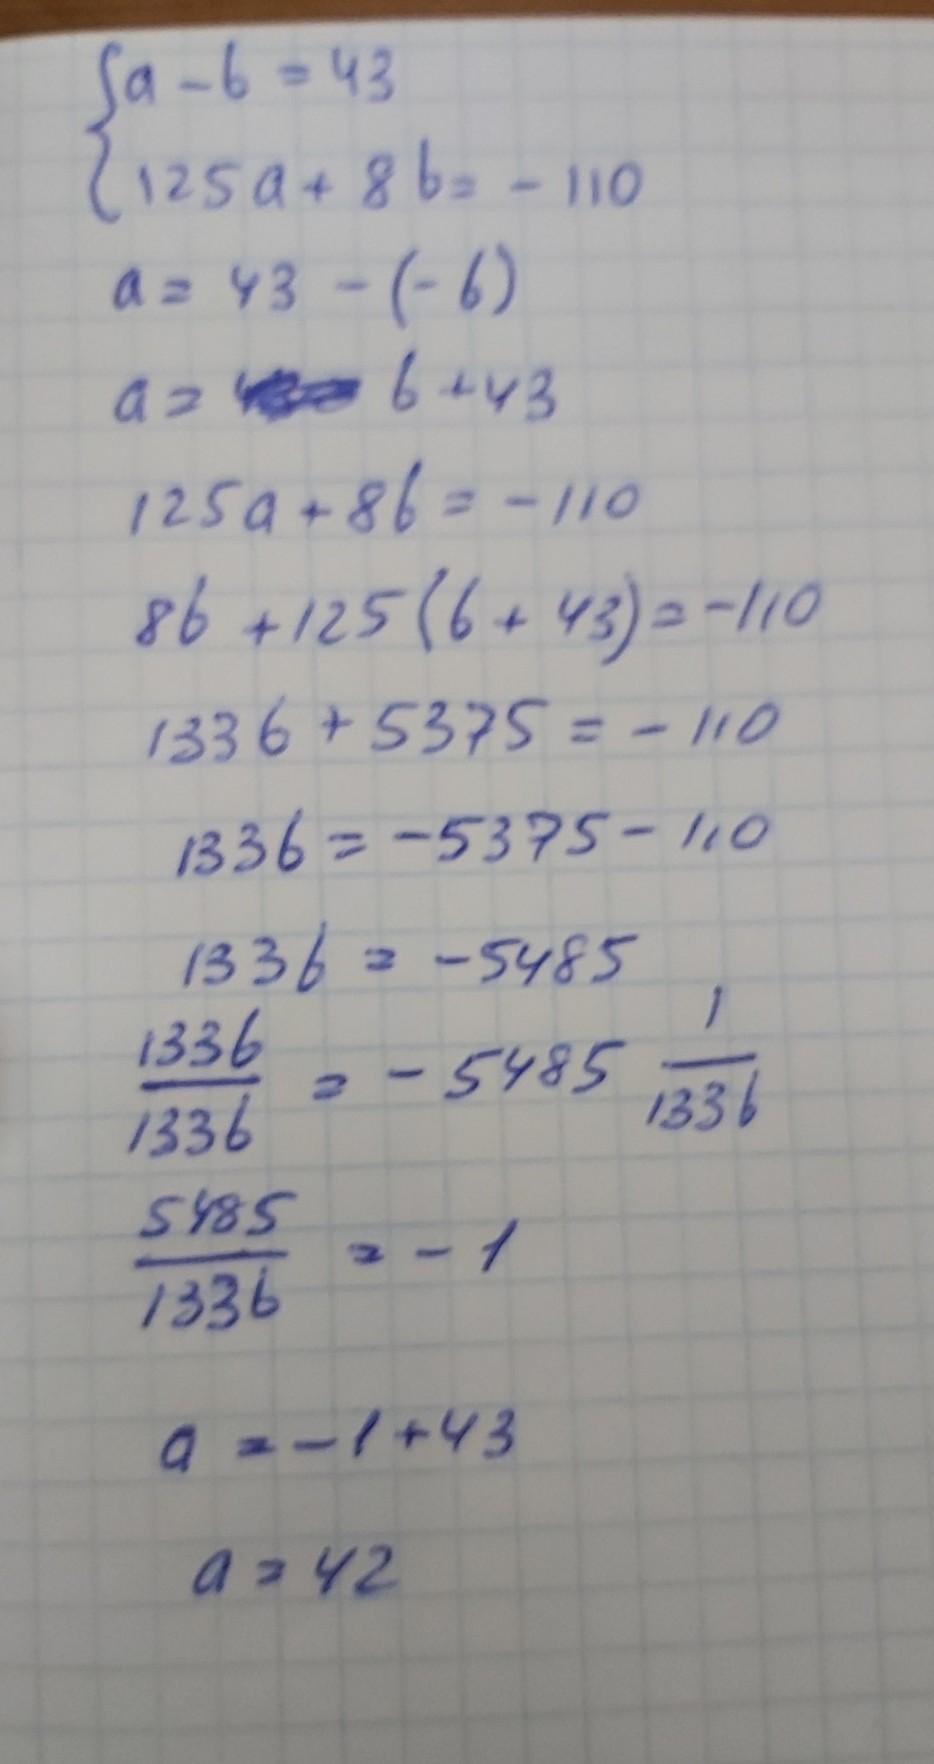 {a - b = 43
125a + 8b = - 110
a = 43 - (- b)
a = b + 43
125a + 8b = - 110
8b + 125(b + 43) = -110
133b + 5375 = - 110
133b = -5375 - 110
133b = -5485
133b/133b = - 5485 1/133b
5485/133b = - 1
a = - 1 + 43
a = 42